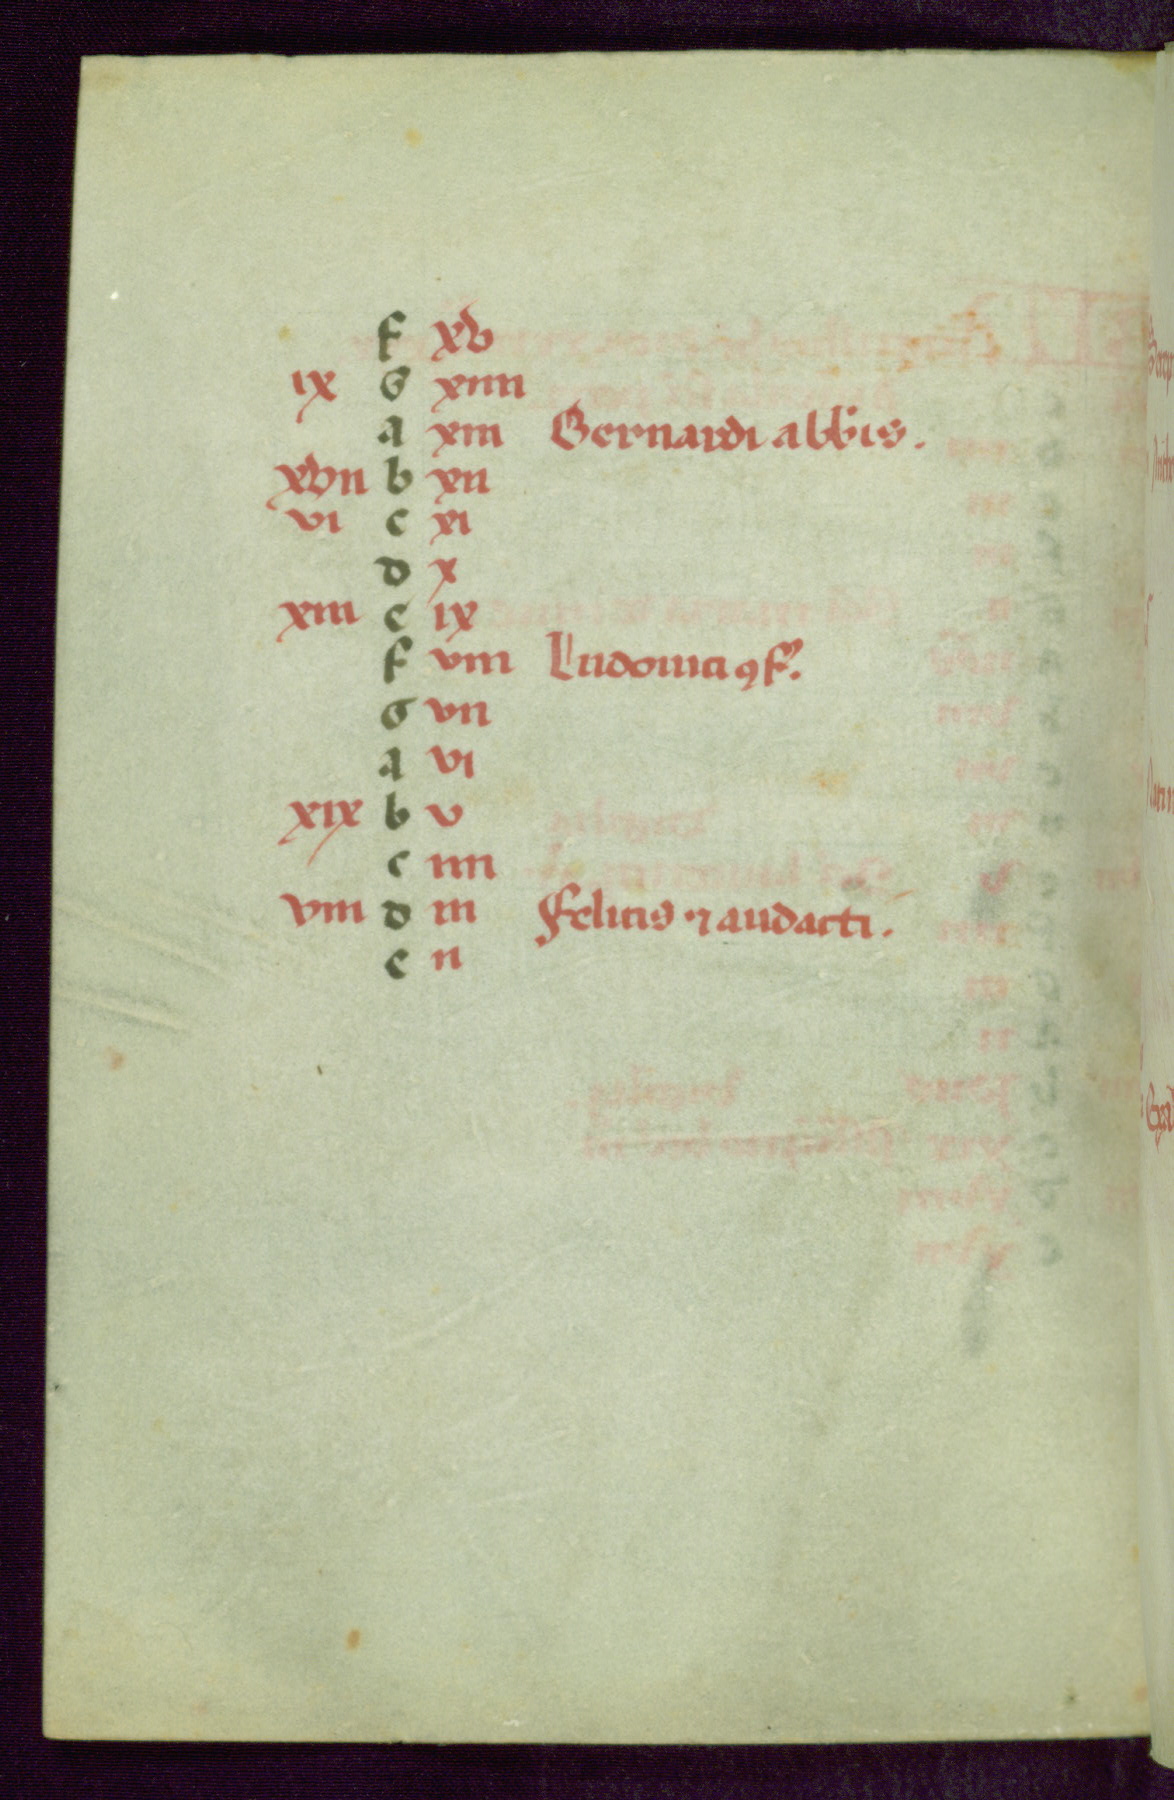 f xv
ix G xiiii
a xiii Bernardi abb̄is.
xvii b xii
vi c xi
d x
xiiii e ix
f viii Ludouici ꝯf.
G vii
a vi
xix b v
c iiii
viii d iii Felicis ⁊ audacti.
e ii